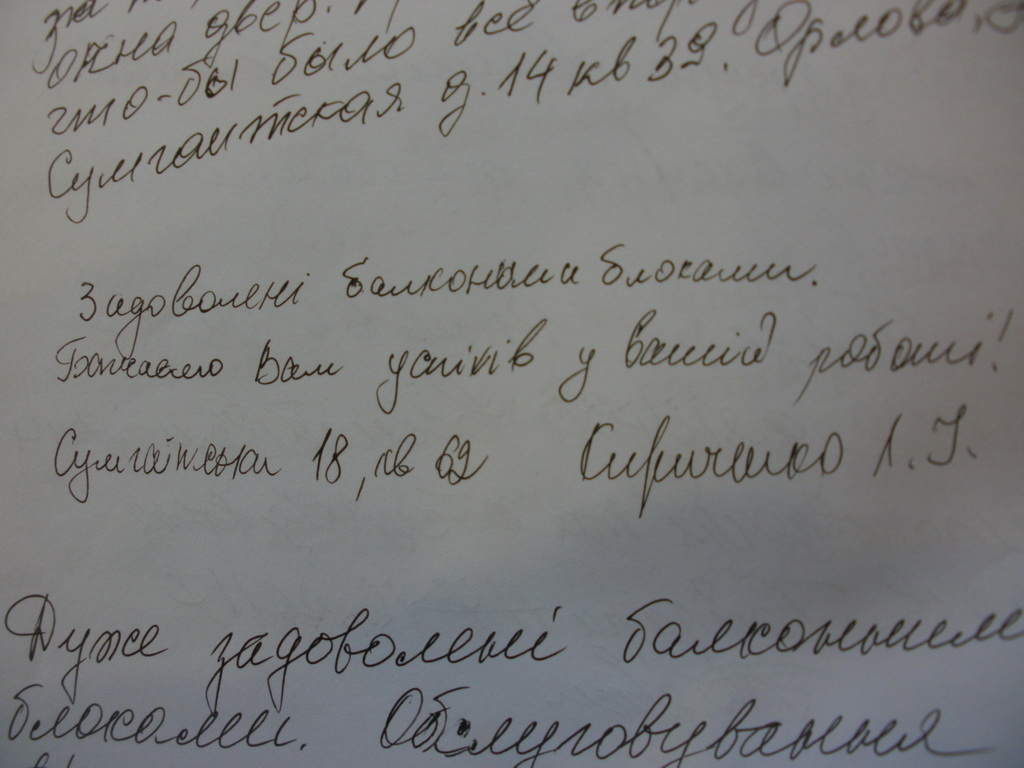 окна двер.
что-бы было всё
Сумгаитская д. 14 кв 39. Орлова
Задоволені балконими блоками.
Бажаємо Вам успіхів у вашій роботі!
Сумгаїтська 18, кв 62 Кириченко Л. І.
Дуже задоволені балконними
блоками. Обслуговування